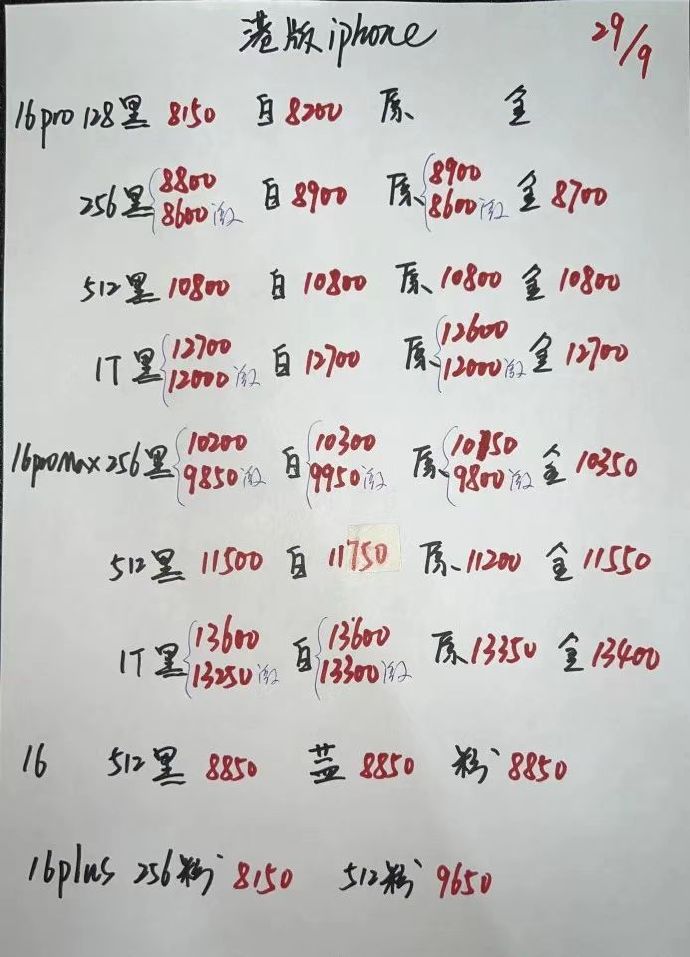 港版iphone 29/9
16pro 128黑 8150 白 8200 原 金
256黑 8800 8600激 白 8900 原 8900 8600激 金 8700
512黑 10800 白 10800 原 10800 金 10800
1T黑 12700 12000激 白 12700 原 12600 12000激 金 12700
16promax 256黑 10200 9850激 白 10300 9950激 原 10150 9800激 金 10350
512黑 11500 白 11750 原 11200 金 11550
1T黑 13600 13250激 白 13600 13300激 原 13350 金 13400
16 512黑 8850 蓝 8850 粉 8850
16plus 256粉 8150 512粉 9650